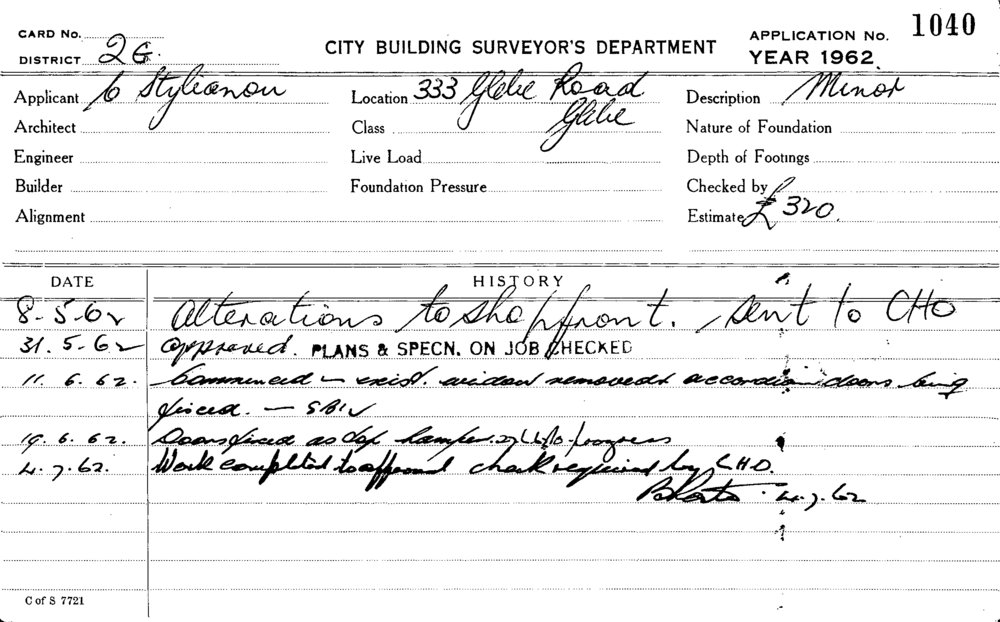 CARD No.
DISTRICT 2G.
CITY BUILDING SURVEYOR'S DEPARTMENT
APPLICATION No. 1040
YEAR 1962.
Applicant C Stylianou
Location 333 Glebe Road
Glebe
Description Minor
Architect
Class
Nature of Foundation
Engineer
Live Load
Depth of Footings
Builder
Foundation Pressure
Checked by
Alignment
Estimate £320.
DATE HISTORY
8-5-62 Alterations to shopfront. Sent to CHO
31.5-62 approved. PLANS & SPECN. ON JOB CHECKED
11.6.62. Commenced - exist. window removed & accordian doors being
fixed. -
19.6.62. Doors fixed as progress
4.7.62. Work completed to approval check required by CHO.
4.7.62
C of S 7721